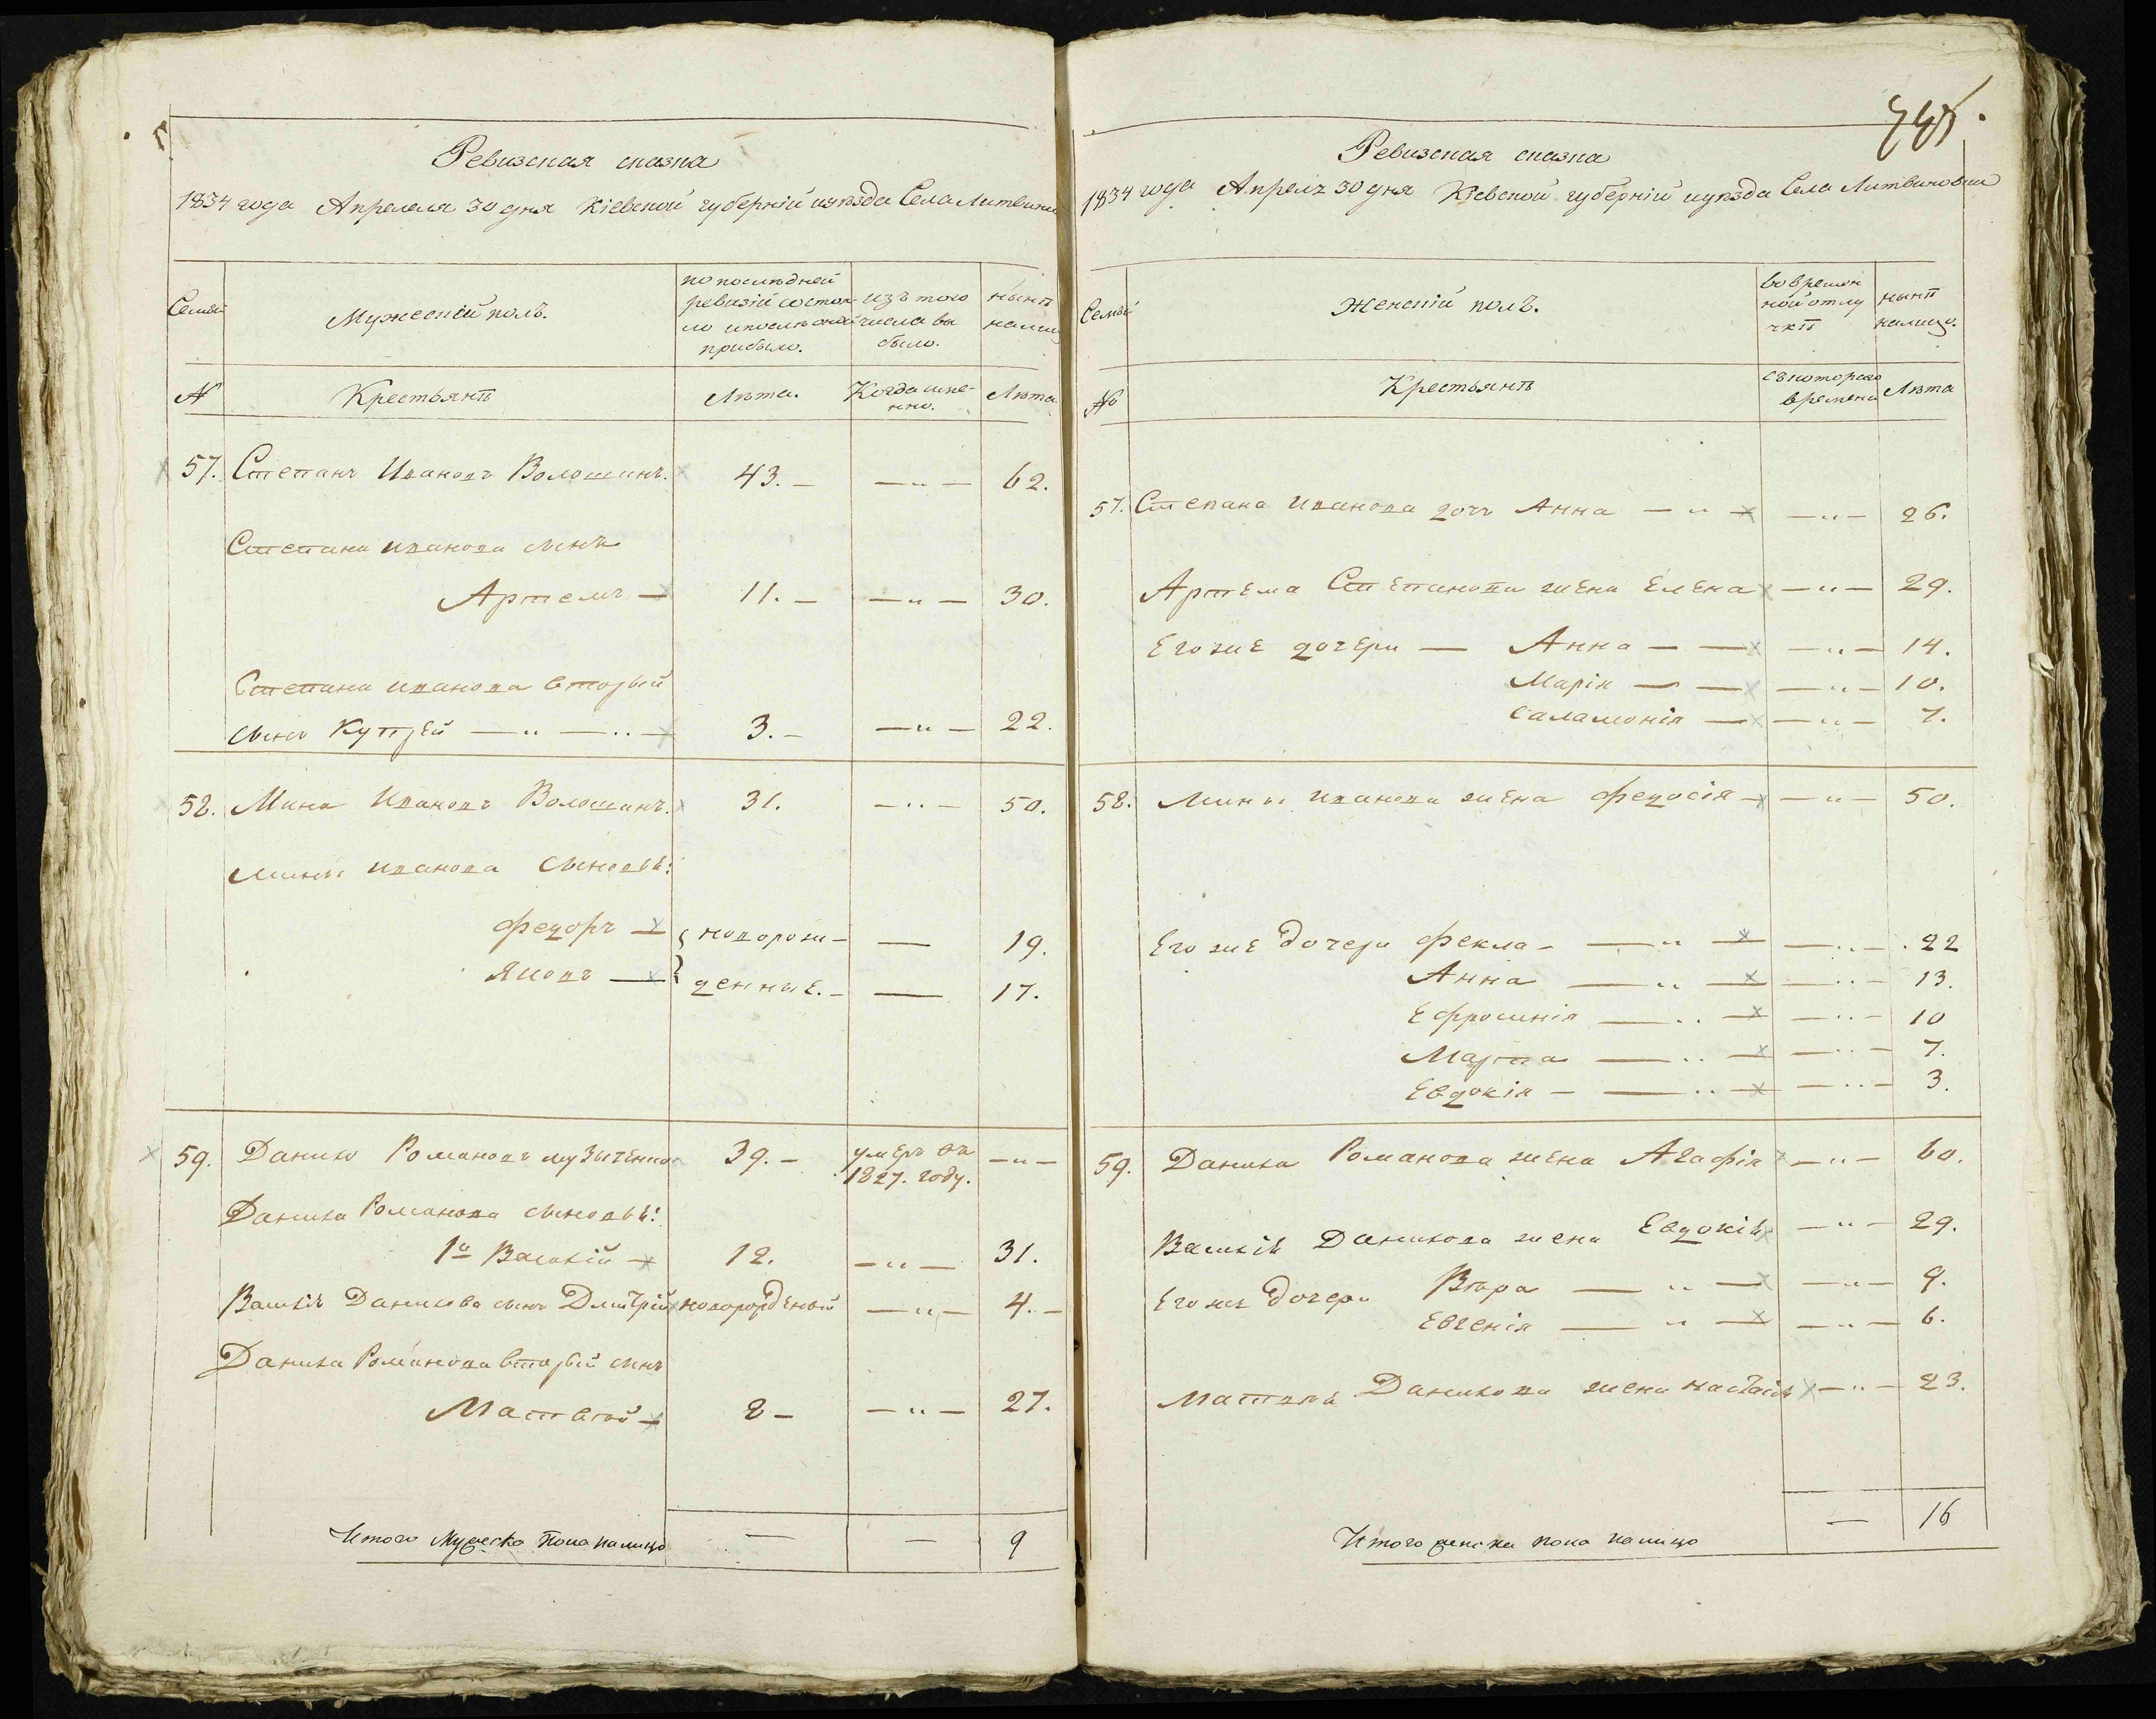 Ревизская сказка
1834 года Апреля 30 дня Кіевской губерніи иуѣзда Села Литвинов
Семьи
Мужескій полъ.
по последней
ревизіи состоя-
ло и после оной
прибыло.
изъ того
числа вы
было.
нынѣ
налицо
№
Крестьянѣ
Лѣта.
Когда имен-
но.
Лѣта
57. Степанъ Ивановъ Волошинъ. 43. — — " — 62.
Степана Иванова сынъ
Артемъ — 11. — — " — 30.
Степана Иванова вторый
сынъ Купрей — " — " — 3. — — " — 22.
58. Мина Ивановъ Волошинъ. 31. — " — 50.
Мины Иванова сыновья:
Федоръ — новорож- — 19.
Яковъ — денные. — — 17.
59. Данило Романовъ Музыченко 39. — умеръ въ — " —
1827. году.
Данила Романова сыновья:
1й Василій — 12. — " — 31.
Василія Данилова сынъ Дмитрій новорожденый — " — 4. —
Данила Романова вторый сынъ
Матвей — 8 — — " — 27.
Итого Мужеска Пола налицо — — 9
Ревизская сказка
1834 года Апреля 30 дня Кіевской губерніи иуѣзда Села Литвиновки
Семьи
Женскій полъ.
во времен
ной отлу
чкѣ
нынѣ
налицо.
№
Крестьянѣ
съкотораго
времени
Лѣта
57. Степана Иванова дочь Анна — " — — " — 26.
Артема Степанова жена Елена — " — 29.
Его же дочери — Анна — — — " — 14.
Марія — — — " — 10.
Саламонія — — " — 7.
58. Мины Иванова жена Федосія — — " — 50.
Его же дочери Фекла — — " — — " — 22
Анна — " — — " — 13.
Ефросинія — " — — " — 10
Марта — " — — " — 7.
Евдокія — — " — — " — 3.
59. Данила Романова жена Агафія — " — 60.
Василія Данилова жена Евдокія — " — 29.
Его же дочери Вѣра — " — — " — 9.
Евгенія — " — — " — 6.
Матвея Данилова жена Настасія — " — 23.
Итого женска пола налицо — 16